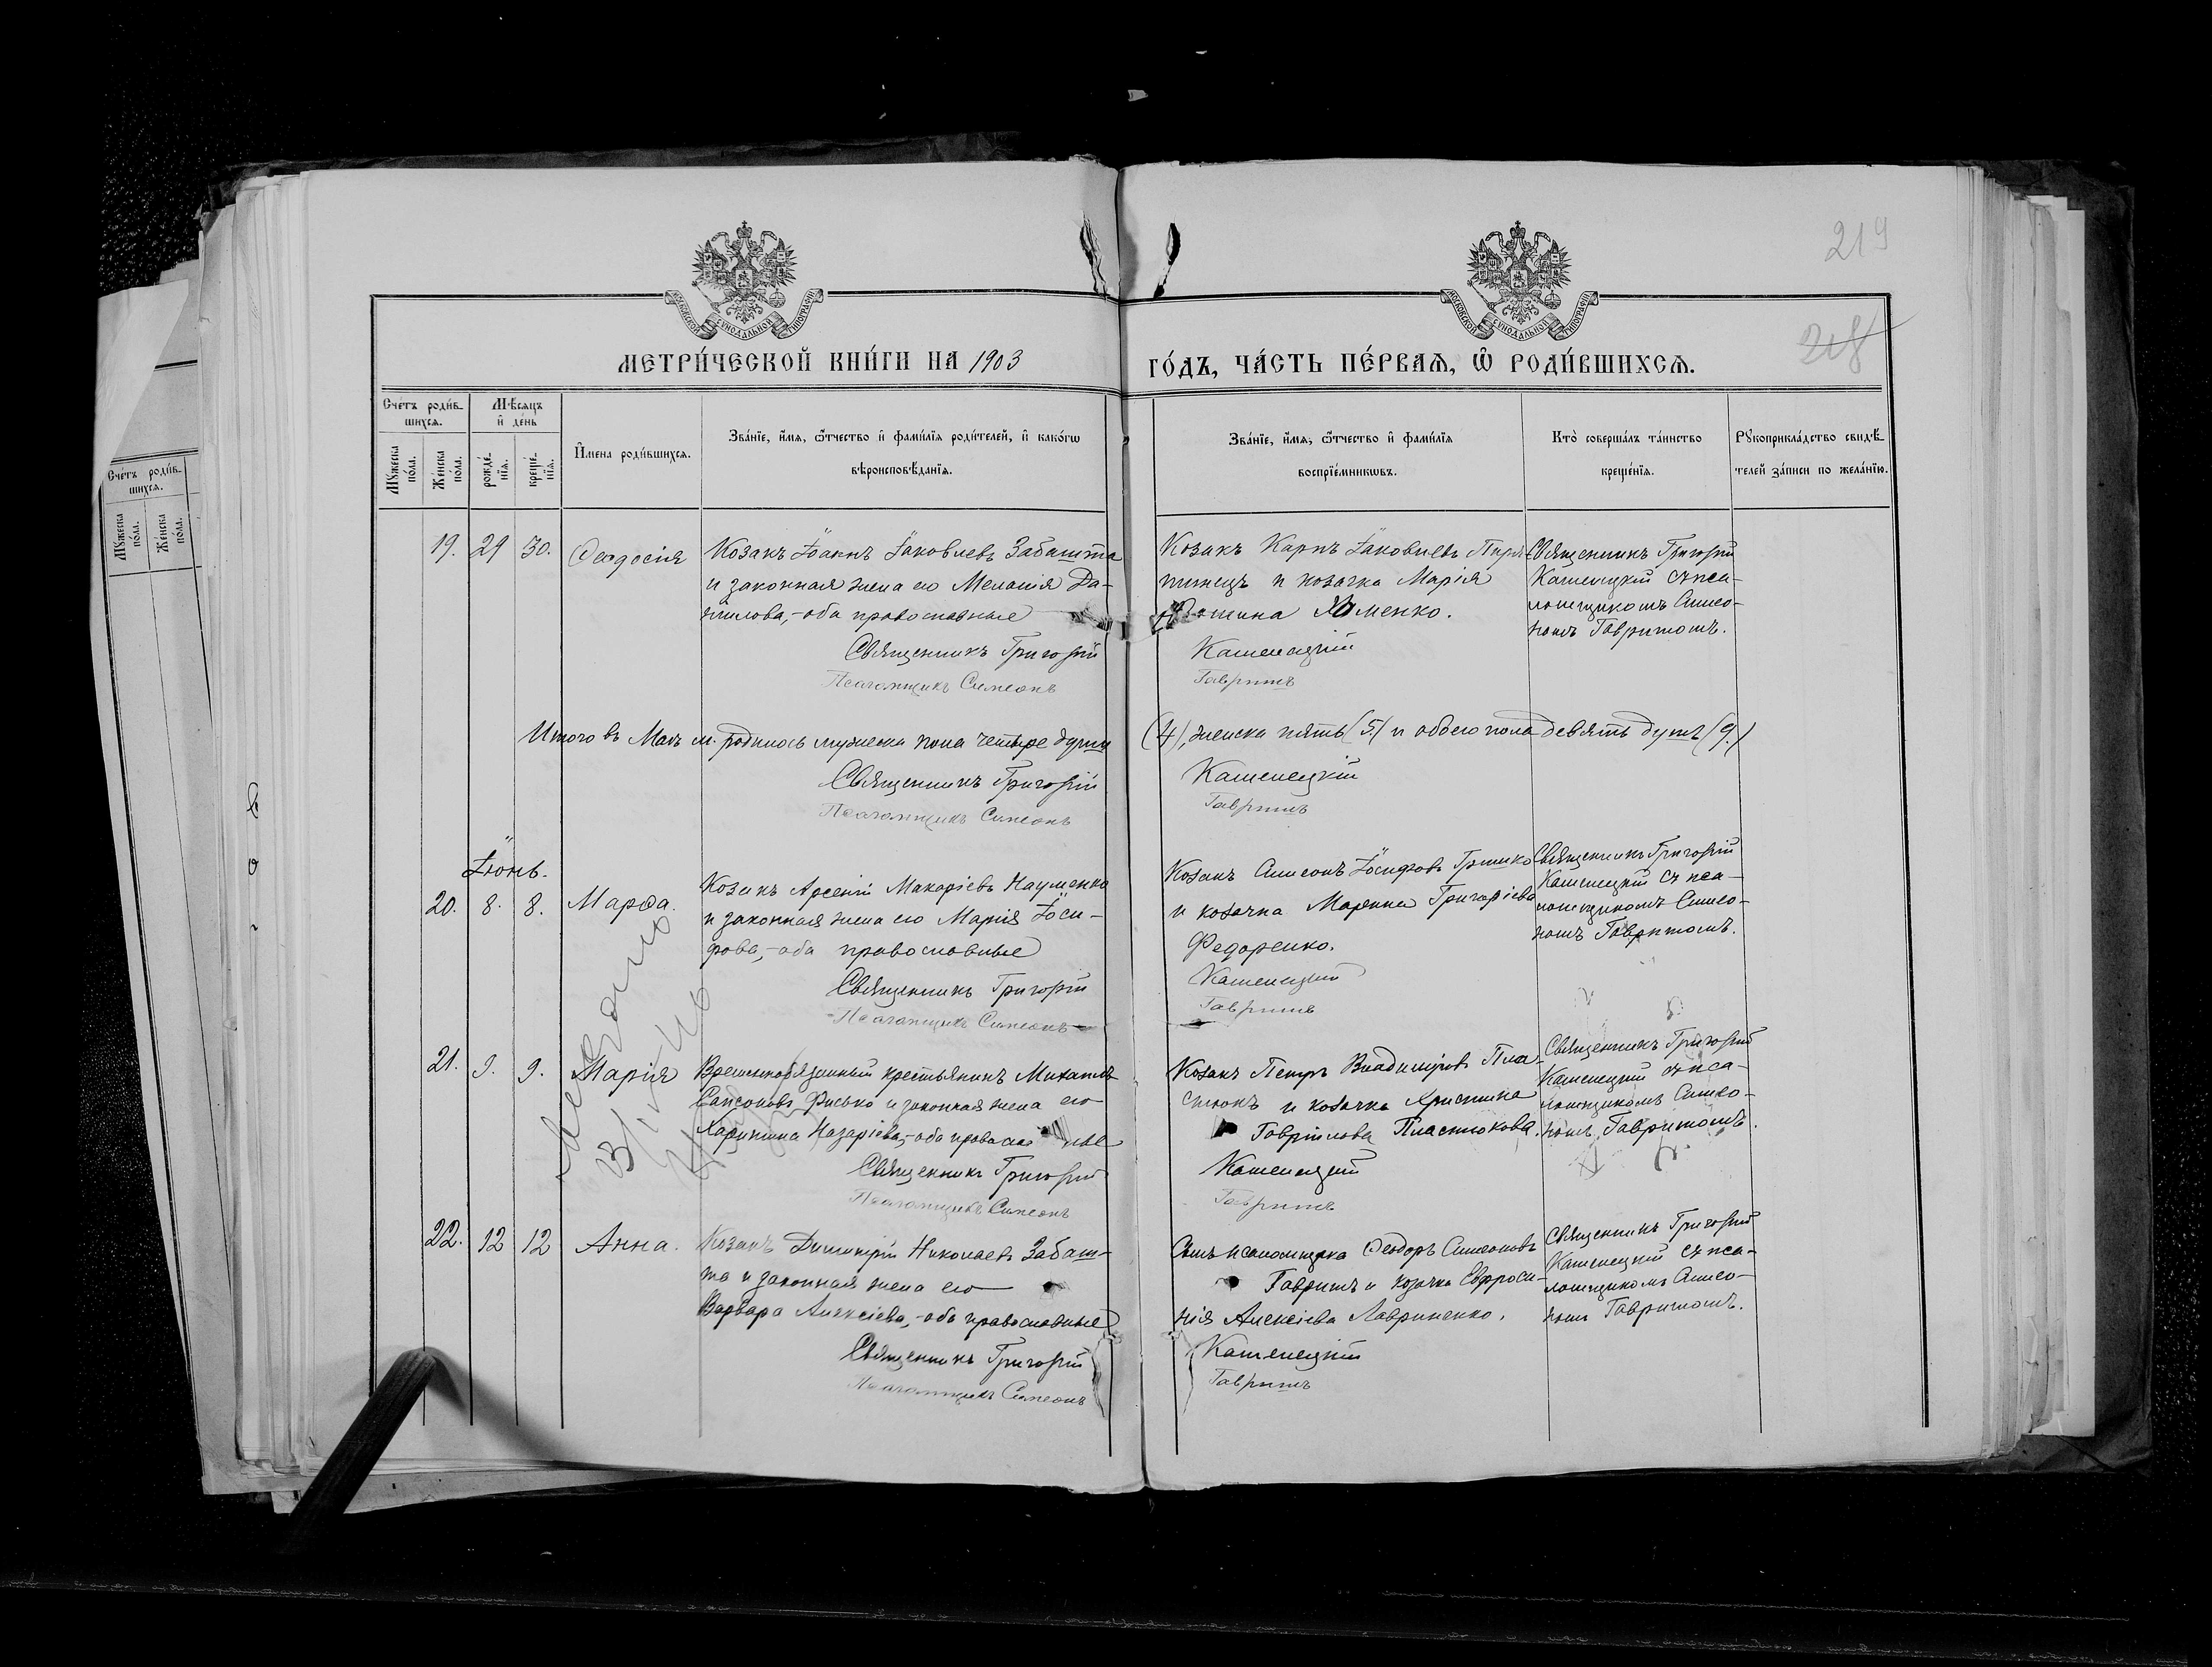 219
218
МОСКОВСКОЙ СѴНОДАЛЬНОЙ ТИПОГРАФІИ
МОСКОВСКОЙ СѴНОДАЛЬНОЙ ТИПОГРАФІИ
МЕТРИ́ЧЕСКОЙ КНИ́ГИ НА 1903
ГО́ДЪ, ЧА́СТЬ ПЕ́РВАѦ, Ѡ҆ РОДИ́ВШИХСѦ.
Сче́тъ роди́в-
шихсѧ.
Мѣ́сѧцъ
и҆ де́нь
Мꙋ́жеска
по́ла.
Же́нска
по́ла.
рожде́-
нїѧ.
креще́-
нїѧ.
И҆мена роди́вшихсѧ.
Зва́нїе, и҆́мѧ, ѻ҆́тчество и҆ фами́лїѧ роди́телей, и҆ како́гѡ
вѣроисповѣ́данїѧ.
Зва́нїе, и҆́мѧ, ѻ҆́тчество и҆ фами́лїѧ
воспрїе́мникѡвъ.
Кто̀ соверша́лъ та́инство
креще́нїѧ.
Рꙋкоприкла́дство свидѣ́-
телей за́писи по жела́нїю.
Сче́тъ роди́в-
шихсѧ.
Мꙋ́жеска
по́ла.
Же́нска
по́ла.
19. 29 30. Ѳеодосія
Козакъ Іоаннъ Іаковлевъ Забашта
и законная жена его Меланія Да-
ніилова,-оба православные
Священникъ Григорій
Псаломщикъ Симеонъ
Козакъ Карпъ Іаковлевъ Пиря-
тинецъ и козачка Марія
Хоменко.
Каменецкій
Гавришъ
Священникъ Григорій
Каменецкій съ пса-
ломщикомъ Симео-
номъ Гавришомъ.
Итого въ Маѣ м. родилось мужеска пола четыре души
(4), женска пять (5.) и обоего пола девять душъ (9.)
Священникъ Григорій
Каменецкій
Псаломщикъ Симеонъ
Гавришъ
Іюнь.
20. 8. 8. Марѳа.
Козакъ Арсеній Макаріевъ Науменко
и законная жена его Марія Іоси-
фова,-оба православные
Священникъ Григорій
Псаломщикъ Симеонъ
Козакъ Симеонъ Іосифовъ Гришко
и козачка Марина Григоріева
Федоренко.
Каменецкій
Гавришъ
Священникъ Григорій
Каменецкій съ пса-
ломщикомъ Симео-
номъ Гавришомъ.
21. 9. 9. Марія
Временнобязанный крестьянинъ Михаилъ
Сапсоновъ Фисько и законная жена его
Харитина Назаріева,-оба
Священникъ Григорій
Псаломщикъ Симеонъ
Козакъ Петръ Владиміровъ Пла-
стюкъ и козачка Христина
Гавріилова Пластюкова.
Каменецкій
Гавришъ
Священникъ Григорій
Каменецкій съ пса-
ломщикомъ Симео-
номъ Гавришомъ.
22. 12 12 Анна.
Козакъ Димитрій Николаевъ Забаш-
та и законная жена его
Варвара Алексіева,-оба православные
Священникъ Григорій
Псаломщикъ Симеонъ
Сынъ псаломщика Ѳеодоръ Симеоновъ
Гавришъ и козачка Евфроси-
нія Алексіева Лавриненко.
Каменецкій
Гавришъ
Священникъ Григорій
Каменецкій съ пса-
ломщикомъ Симео-
номъ Гавришомъ.